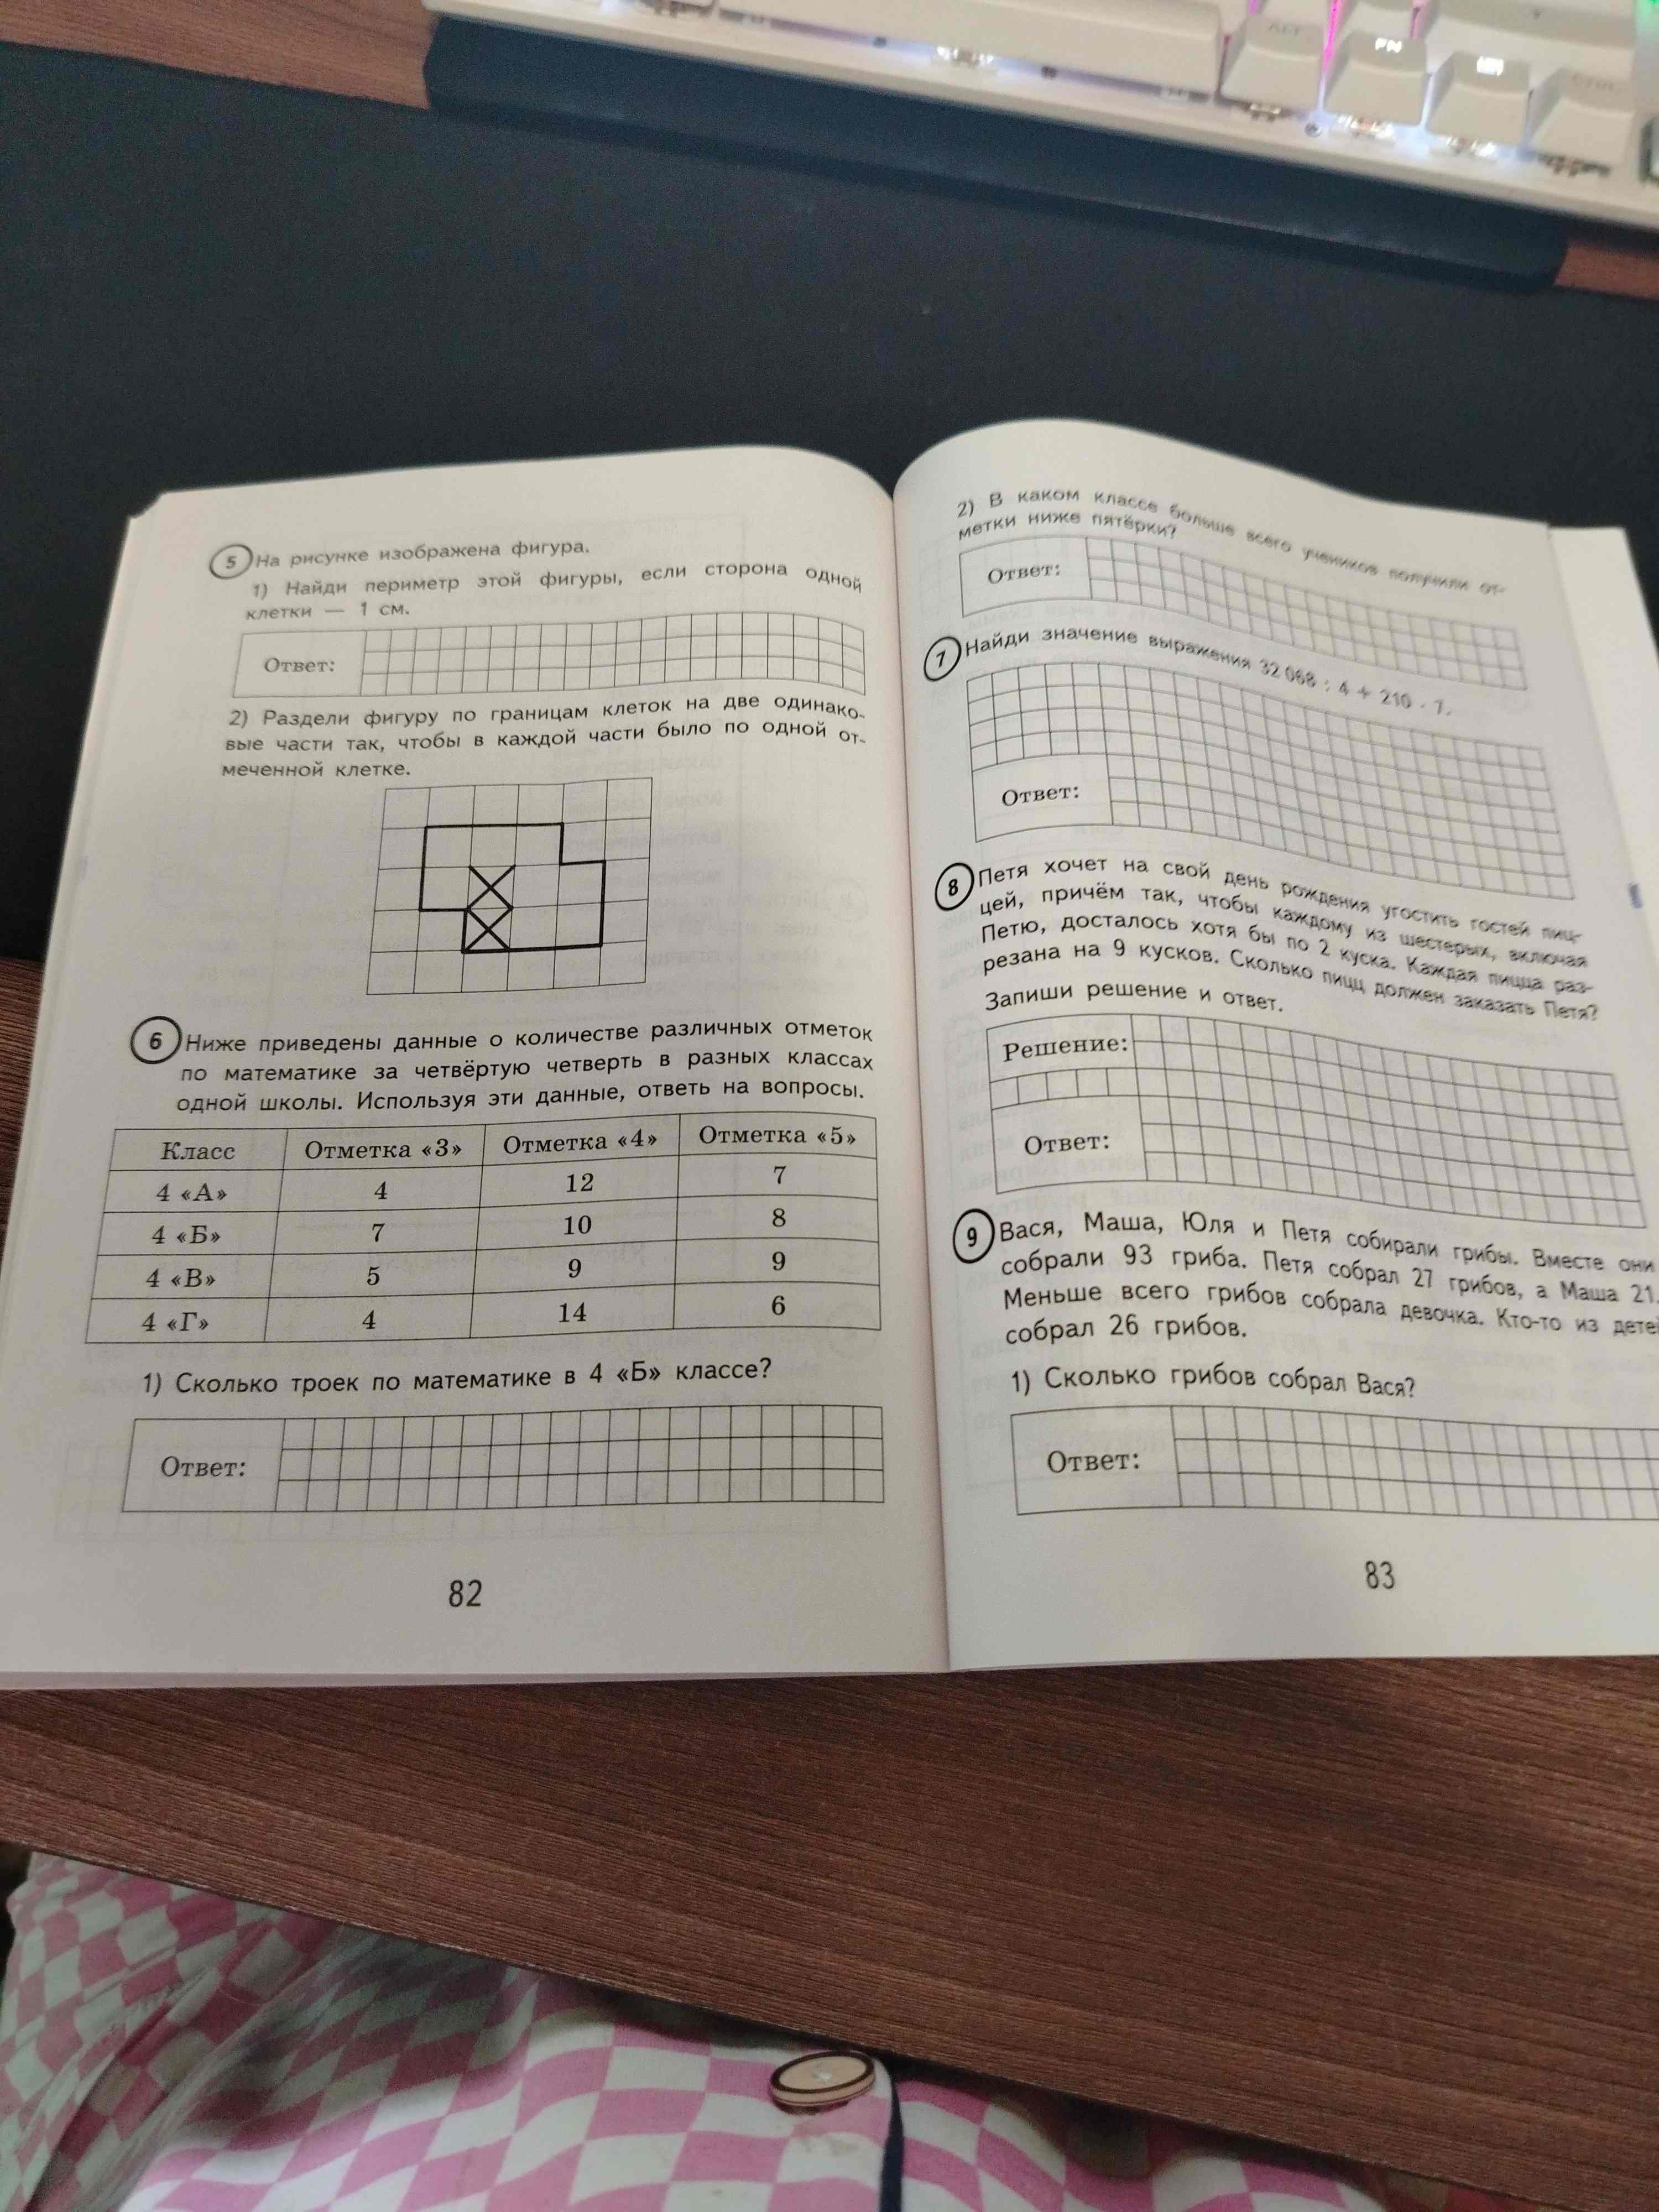 5 На рисунке изображена фигура.
1) Найди периметр этой фигуры, если сторона одной
клетки — 1 см.
Ответ:
2) Раздели фигуру по границам клеток на две одинако-
вые части так, чтобы в каждой части было по одной от-
меченной клетке.
6 Ниже приведены данные о количестве различных отметок
по математике за четвёртую четверть в разных классах
одной школы. Используя эти данные, ответь на вопросы.
Класс Отметка «3» Отметка «4» Отметка «5»
4 «А» 4 12 7
4 «Б» 7 10 8
4 «В» 5 9 9
4 «Г» 4 14 6
1) Сколько троек по математике в 4 «Б» классе?
Ответ:
82
2) В каком классе больше всего учеников получили от-
метки ниже пятёрки?
Ответ:
7 Найди значение выражения 32 068 : 4 + 210 · 7.
Ответ:
8 Петя хочет на свой день рождения угостить гостей пиц-
цей, причём так, чтобы каждому из шестерых, включая
Петю, досталось хотя бы по 2 куска. Каждая пицца раз-
резана на 9 кусков. Сколько пицц должен заказать Петя?
Запиши решение и ответ.
Решение:
Ответ:
9 Вася, Маша, Юля и Петя собирали грибы. Вместе они
собрали 93 гриба. Петя собрал 27 грибов, а Маша 21.
Меньше всего грибов собрала девочка. Кто-то из детей
собрал 26 грибов.
1) Сколько грибов собрал Вася?
Ответ:
83
FN